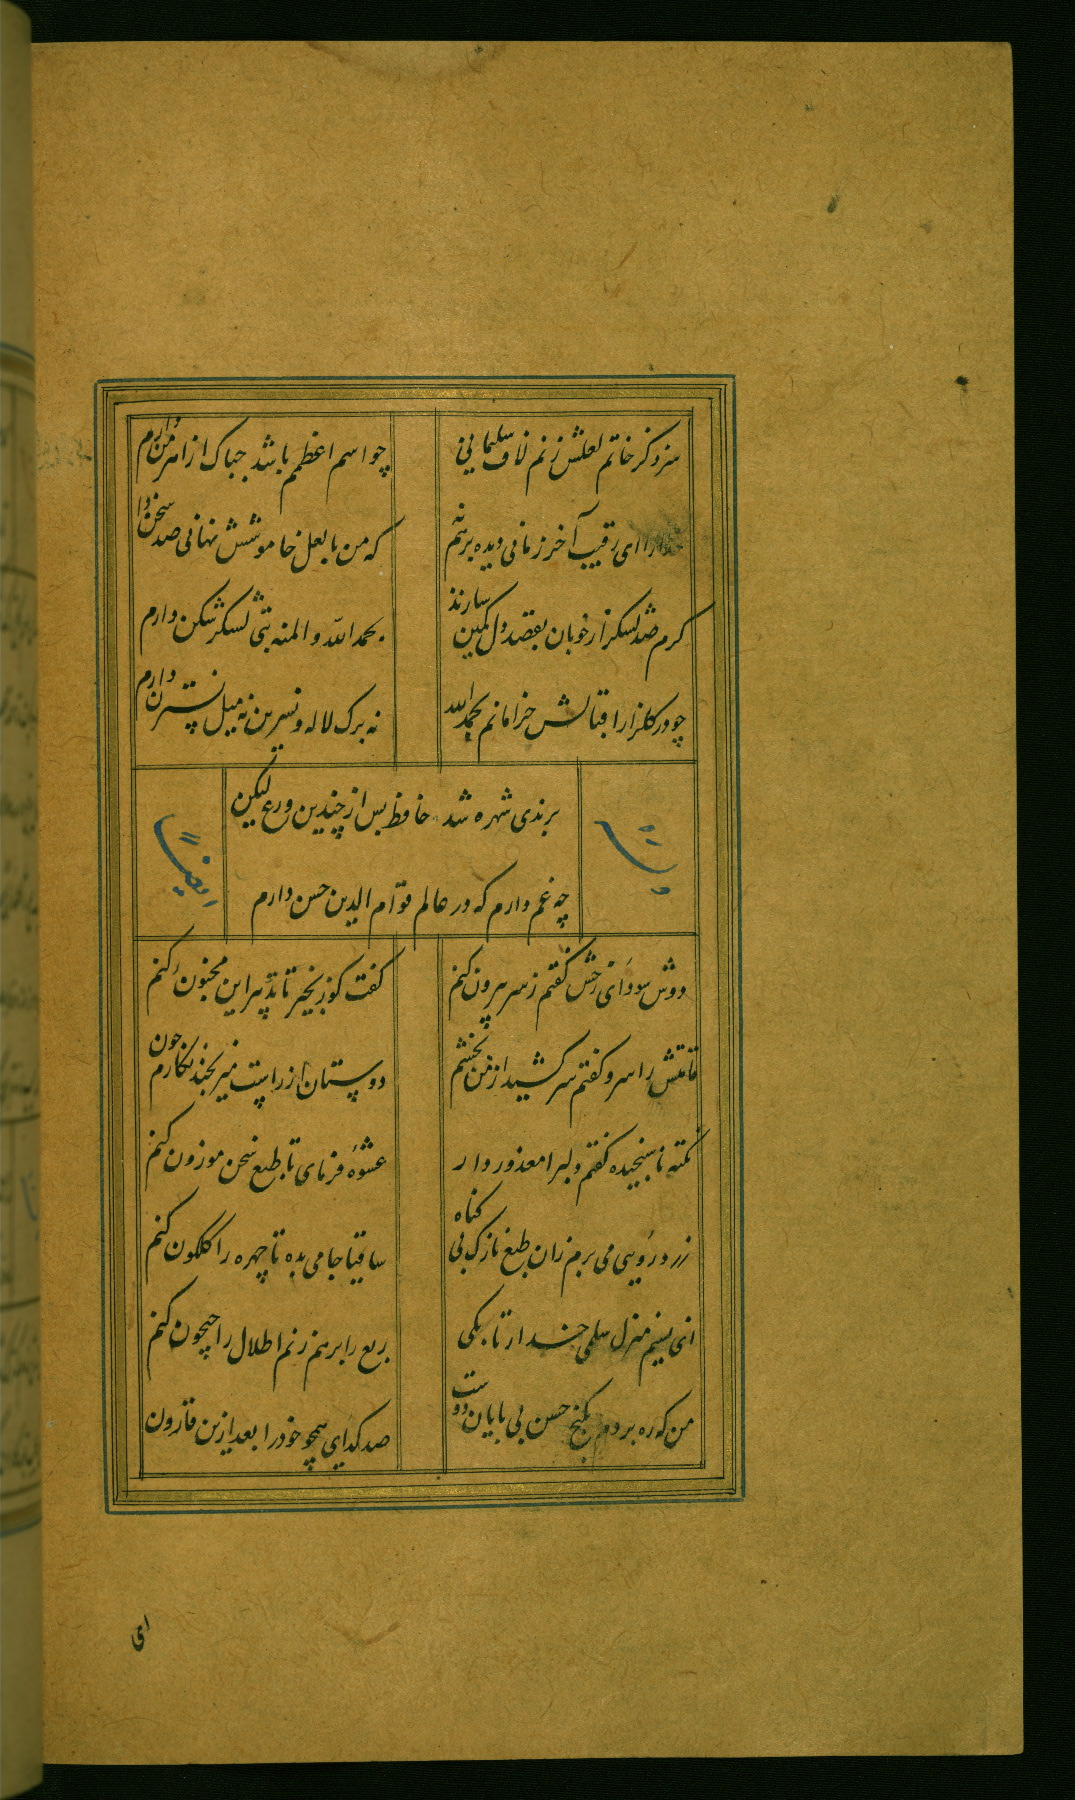 سزد کز خاتم لعلش زنم لاف سلیمانی
چو اسم اعظمم باشد چه باک از اهرمن دارم
خدارا ای رقیب آخر زمانی دیده برهم نه
که من با لعل خاموشش نهانی صد سخن دارم
کرم صد لشکر از خوبان بقصد دل کمین سازند
بحمد الله و المنه بتی لشکر شکن دارم
چو در کلزار اقبالش خرامانم بحمد الله
نه برک لاله و نسرین نه میل نسترن دارم
برندی شهره شد حافظ پس از چندین ورع لیکن
چه غم دارم که در عالم قوام الدین حسن دارم
وله
ایضاً
دوش سودای رخش کفتم ز سر بیرون کنم
کفت کو زنجیر تا تدبیر این مجنون کنم
قامتش را سرو کفتم سر کشید از من بخشم
دوستان از راست میرنجد نکارم چون کنم
نکته ناسنجیده کفتم دلبرا معذور دار
عشوهٔ فرمای تا طبع سخن موزون کنم
زرد رویی می برم زان طبع نازک بی کناه
ساقیا جامی بده تا چهره را کلکون کنم
ای نسیم منزل سلمی خدا را تا بکی
ربع را برهم زنم اطلال را جیحون کنم
من که ره بردم بکنج حسن بی پایان دوست
صد کدای همچو خود را بعد ازین قارون
ای